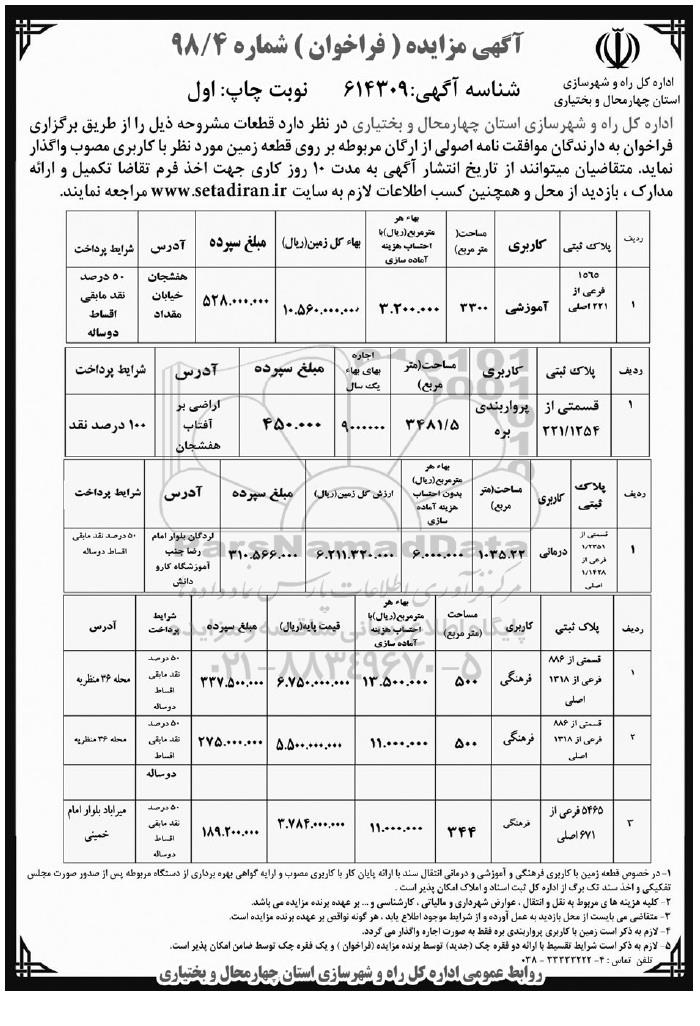 آگهی مزایده ( فراخوان ) شماره ۹۸/۴
اداره کل راه و شهرسازی
استان چهارمحال و بختیاری
شناسه آگهی:۶۱۴۳۰۹ نوبت چاپ: اول
اداره کل راه و شهرسازی استان چهارمحال و بختیاری در نظر دارد قطعات مشروحه ذیل را از طریق برگزاری
فراخوان به دارندگان موافقت نامه اصولی از ارگان مربوطه بر روی قطعه زمین مورد نظر با کاربری مصوب واگذار
نماید. متقاضیان میتوانند از تاریخ انتشار آگهی به مدت ۱۰ روز کاری جهت اخذ فرم تقاضا تکمیل و ارائه
مدارک ، بازدید از محل و همچنین کسب اطلاعات لازم به سایت www.setadiran.ir مراجعه نمایند.
ردیف پلاک ثبتی کاربری مساحت(متر مربع) بهاء هر مترمربع(ریال)با احتساب هزینه آماده سازی بهاء کل زمین(ریال) مبلغ سپرده آدرس شرایط پرداخت
۱ ۱۵۶۵ فرعی از ۲۲۱ اصلی آموزشی ۳۳۰۰ ۳.۲۰۰.۰۰۰ ۱۰.۵۶۰.۰۰۰.۰۰۰ ۵۲۸.۰۰۰.۰۰۰ هفشجان خیابان مقداد ۵۰ درصد نقد مابقی اقساط دوساله
ردیف پلاک ثبتی کاربری مساحت(متر مربع) اجاره بهای بهاء یک سال مبلغ سپرده آدرس شرایط پرداخت
۱ قسمتی از ۲۲۱/۱۲۵۴ پرواربندی بره ۳۴۸۱/۵ ۹۰۰۰۰۰۰ ۴۵۰.۰۰۰ اراضی بر آفتاب هفشجان ۱۰۰ درصد نقد
ردیف پلاک ثبتی کاربری مساحت(متر مربع) بهاء هر مترمربع(ریال) بدون احتساب هزینه آماده سازی ارزش کل زمین(ریال) مبلغ سپرده آدرس شرایط پرداخت
۱ قسمتی از ۱/۲۳۵۱ فرعی از ۱/۱۴۲۸ اصلی درمانی ۱۰۳۵.۲۲ ۶.۰۰۰.۰۰۰ ۶.۲۱۱.۳۲۰.۰۰۰ ۳۱۰.۵۶۶.۰۰۰ لردگان بلوار امام رضا جنب آموزشگاه کارو دانش ۵۰ درصد نقد مابقی اقساط دوساله
ردیف پلاک ثبتی کاربری مساحت (متر مربع) بهاء هر مترمربع(ریال)با احتساب هزینه آماده سازی قیمت پایه(ریال) مبلغ سپرده شرایط پرداخت آدرس
۱ قسمتی از ۸۸۶ فرعی از ۱۳۱۸ اصلی فرهنگی ۵۰۰ ۱۳.۵۰۰.۰۰۰ ۶.۷۵۰.۰۰۰.۰۰۰ ۳۳۷.۵۰۰.۰۰۰ ۵۰ درصد نقد مابقی اقساط دوساله محله ۳۶ منظریه
۲ قسمتی از ۸۸۶ فرعی از ۱۳۱۸ اصلی فرهنگی ۵۰۰ ۱۱.۰۰۰.۰۰۰ ۵.۵۰۰.۰۰۰.۰۰۰ ۲۷۵.۰۰۰.۰۰۰ ۵۰ درصد نقد مابقی اقساط دوساله محله ۳۶ منظریه
۳ ۵۴۶۵ فرعی از ۶۷۱ اصلی فرهنگی ۳۴۴ ۱۱.۰۰۰.۰۰۰ ۳.۷۸۴.۰۰۰.۰۰۰ ۱۸۹.۲۰۰.۰۰۰ ۵۰ درصد نقد مابقی اقساط دوساله میراباد بلوار امام خمینی
ParsNamadData
۰۲۱-۸۸۳۴۹۶۷۰-۵
۱- در خصوص قطعه زمین با کاربری فرهنگی و آموزشی و درمانی انتقال سند با ارائه پایان کار با کاربری مصوب و ارایه گواهی بهره برداری از دستگاه مربوطه پس از صدور صورت مجلس
تفکیکی و اخذ سند تک برگ از اداره کل ثبت اسناد و املاک امکان پذیر است .
۲- کلیه هزینه ها ی مربوط به نقل و انتقال ، عوارض شهرداری و مالیاتی ، کارشناسی و ... بر عهده برنده مزایده می باشد.
۳- متقاضی می بایست از محل بازدید به عمل آورده و از شرایط موجود اطلاع یابد ، هر گونه نواقص بر عهده برنده مزایده است.
۴- لازم به ذکر است زمین با کاربری پرواربندی بره فقط به صورت اجاره واگذار می گردد.
۵- لازم به ذکر است شرایط تقسیط با ارائه دو فقره چک (جدید) توسط برنده مزایده (فراخوان ) و یک فقره چک توسط ضامن امکان پذیر است.
تلفن تماس : ۴- ۳۳۳۳۲۲۲۲ - ۰۳۸
روابط عمومی اداره کل راه و شهرسازی استان چهارمحال و بختیاری